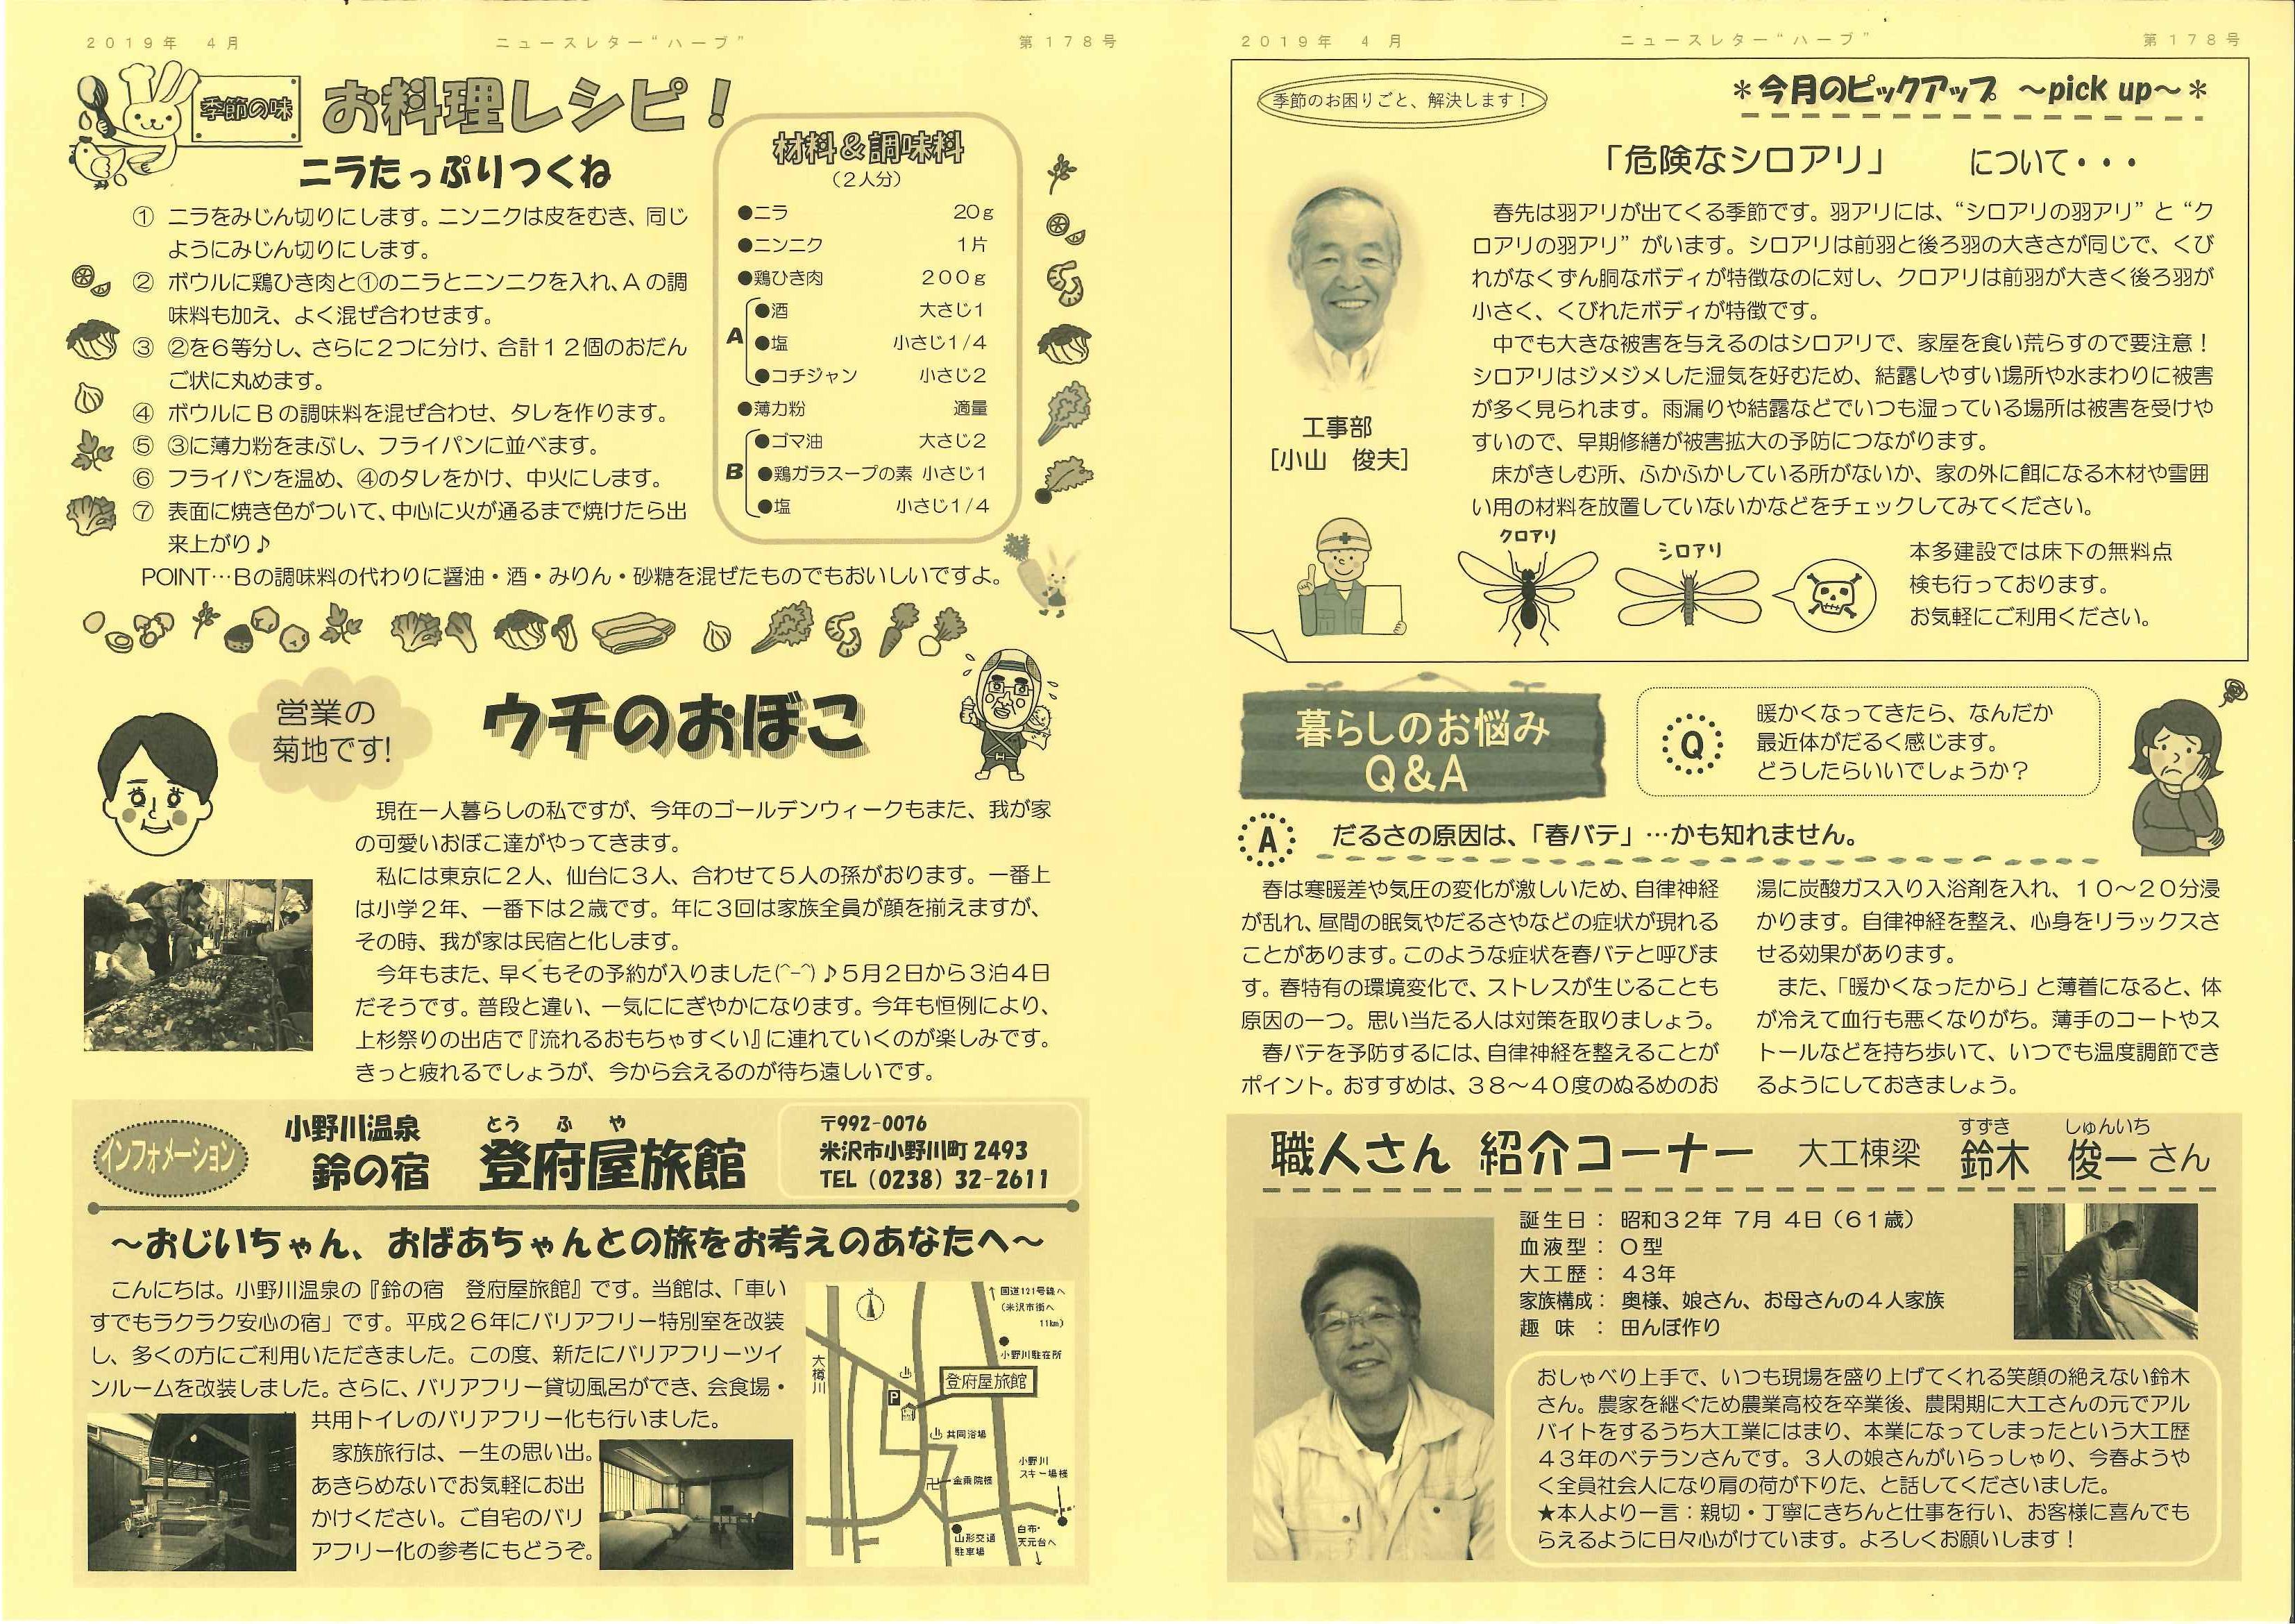 2019年 4月
ニュースレター“ハーブ”
第178号
季節の味
お料理レシピ！
ニラたっぷりつくね
① ニラをみじん切りにします。ニンニクは皮をむき、同じ
ようにみじん切りにします。
② ボウルに鶏ひき肉と①のニラとニンニクを入れ、Aの調
味料も加え、よく混ぜ合わせます。
③ ②を6等分し、さらに2つに分け、合計12個のおだん
ご状に丸めます。
④ ボウルにBの調味料を混ぜ合わせ、タレを作ります。
⑤ ③に薄力粉をまぶし、フライパンに並べます。
⑥ フライパンを温め、④のタレをかけ、中火にします。
⑦ 表面に焼き色がついて、中心に火が通るまで焼けたら出
来上がり♪
POINT…Bの調味料の代わりに醤油・酒・みりん・砂糖を混ぜたものでもおいしいですよ。
材料＆調味料
（2人分）
●ニラ 20g
●ニンニク 1片
●鶏ひき肉 200g
A
●酒 大さじ1
●塩 小さじ1/4
●コチジャン 小さじ2
●薄力粉 適量
B
●ゴマ油 大さじ2
●鶏ガラスープの素 小さじ1
●塩 小さじ1/4
営業の
菊地です!
ウチのおぼこ
現在一人暮らしの私ですが、今年のゴールデンウィークもまた、我が家
の可愛いおぼこ達がやってきます。
私には東京に2人、仙台に3人、合わせて5人の孫がおります。一番上
は小学2年、一番下は2歳です。年に3回は家族全員が顔を揃えますが、
その時、我が家は民宿と化します。
今年もまた、早くもその予約が入りました(^-^)♪5月2日から3泊4日
だそうです。普段と違い、一気ににぎやかになります。今年も恒例により、
上杉祭りの出店で『流れるおもちゃすくい』に連れていくのが楽しみです。
きっと疲れるでしょうが、今から会えるのが待ち遠しいです。
インフォメーション
小野川温泉
鈴の宿
とう ふ や
登府屋旅館
〒992-0076
米沢市小野川町 2493
TEL（0238）32-2611
～おじいちゃん、おばあちゃんとの旅をお考えのあなたへ～
こんにちは。小野川温泉の『鈴の宿 登府屋旅館』です。当館は、「車い
すでもラクラク安心の宿」です。平成26年にバリアフリー特別室を改装
し、多くの方にご利用いただきました。この度、新たにバリアフリーツイ
ンルームを改装しました。さらに、バリアフリー貸切風呂ができ、会食場・
共用トイレのバリアフリー化も行いました。
家族旅行は、一生の思い出。
あきらめないでお気軽にお出
かけください。ご自宅のバリ
アフリー化の参考にもどうぞ。
↑国道121号線へ
（米沢市街へ
11km）
小野川駐在所
大樽川
登府屋旅館
P
共同浴場
小野川
スキー場様
卍金乗院様
山形交通
駐車場
白布・
天元台へ
↓
2019年 4月
ニュースレター“ハーブ”
第178号
季節のお困りごと、解決します！
＊今月のピックアップ ～pick up～＊
「危険なシロアリ」 について・・・
工事部
[小山 俊夫]
春先は羽アリが出てくる季節です。羽アリには、“シロアリの羽アリ”と“ク
ロアリの羽アリ”がいます。シロアリは前羽と後ろ羽の大きさが同じで、くび
れがなくずん胴なボディが特徴なのに対し、クロアリは前羽が大きく後ろ羽が
小さく、くびれたボディが特徴です。
中でも大きな被害を与えるのはシロアリで、家屋を食い荒らすので要注意！
シロアリはジメジメした湿気を好むため、結露しやすい場所や水まわりに被害
が多く見られます。雨漏りや結露などでいつも湿っている場所は被害を受けや
すいので、早期修繕が被害拡大の予防につながります。
床がきしむ所、ふかふかしている所がないか、家の外に餌になる木材や雪囲
い用の材料を放置していないかなどをチェックしてみてください。
クロアリ
シロアリ
本多建設では床下の無料点
検も行っております。
お気軽にご利用ください。
暮らしのお悩み
Q&A
Q
暖かくなってきたら、なんだか
最近体がだるく感じます。
どうしたらいいでしょうか？
A
だるさの原因は、「春バテ」…かも知れません。
春は寒暖差や気圧の変化が激しいため、自律神経
が乱れ、昼間の眠気やだるさやなどの症状が現れる
ことがあります。このような症状を春バテと呼びま
す。春特有の環境変化で、ストレスが生じることも
原因の一つ。思い当たる人は対策を取りましょう。
春バテを予防するには、自律神経を整えることが
ポイント。おすすめは、38～40度のぬるめのお
湯に炭酸ガス入り入浴剤を入れ、10～20分浸
かります。自律神経を整え、心身をリラックスさ
せる効果があります。
また、「暖かくなったから」と薄着になると、体
が冷えて血行も悪くなりがち。薄手のコートやス
トールなどを持ち歩いて、いつでも温度調節でき
るようにしておきましょう。
職人さん 紹介コーナー
大工棟梁
すずき しゅんいち
鈴木 俊一さん
誕生日： 昭和32年 7月 4日（61歳）
血液型： O型
大工歴： 43年
家族構成： 奥様、娘さん、お母さんの4人家族
趣 味 ： 田んぼ作り
おしゃべり上手で、いつも現場を盛り上げてくれる笑顔の絶えない鈴木
さん。農家を継ぐため農業高校を卒業後、農閑期に大工さんの元でアル
バイトをするうち大工業にはまり、本業になってしまったという大工歴
43年のベテランさんです。3人の娘さんがいらっしゃり、今春ようや
く全員社会人になり肩の荷が下りた、と話してくださいました。
★本人より一言：親切・丁寧にきちんと仕事を行い、お客様に喜んでも
らえるように日々心がけています。よろしくお願いします！